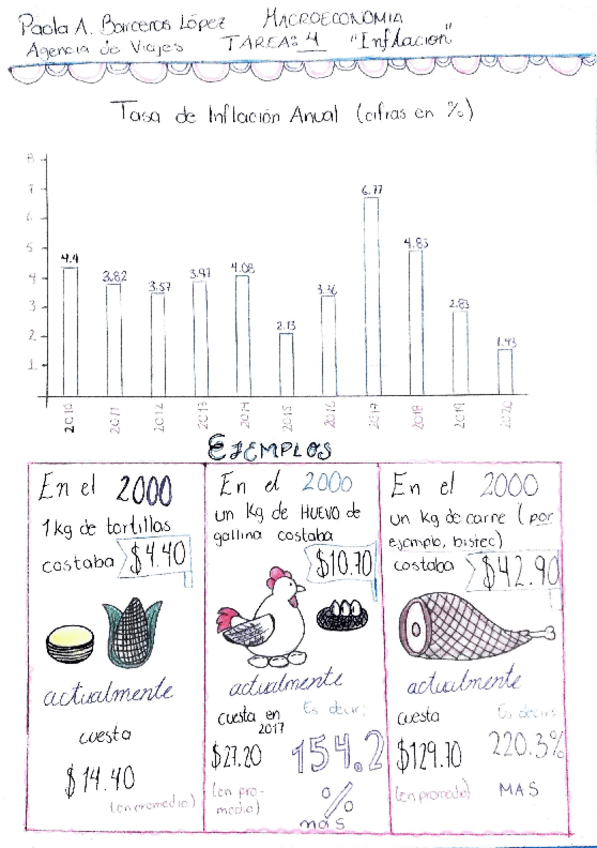 Paola A. Barceros López MACROECONOMIA
Agencia de Viajes TAREAS 4 "Inflación"
Tasa de Inflación Anual (cifras en %)
8
7
6
5
4
3
2
1
4.4
3.82
3.57
3.97
4.08
2.13
3.36
6.77
4.83
2.83
1.43
2010
2011
2012
2013
2014
2015
2016
2017
2018
2019
2020
EJEMPLOS
En el 2000
1 kg de tortillas
costaba $4.40
actualmente
cuesta
$14.40
(en promedio)
En el 2000
un Kg de HUEVO de
gallina costaba
$10.70
actualmente
cuesta en
2017
Es decir:
$27.20
154.2
(en pro-
medio)
%
más
En el 2000
un kg de carne (por
ejemplo, bistec)
costaba $42.90
actualmente
cuesta
Es decir:
$129.70
220.3%
(en promedio)
MAS